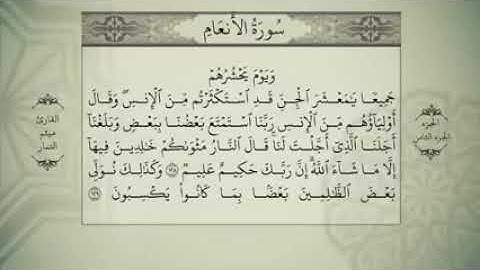 سُورَةُ الأَنعَامِ
وَيَوْمَ يَحْشُرُهُمْ
جَمِيعًا يَٰمَعْشَرَ ٱلْجِنِّ قَدِ ٱسْتَكْثَرْتُم مِّنَ ٱلْإِنسِ ۖ وَقَالَ
أَوْلِيَآؤُهُم مِّنَ ٱلْإِنسِ رَبَّنَا ٱسْتَمْتَعَ بَعْضُنَا بِبَعْضٍ وَبَلَغْنَآ
أَجَلَنَا ٱلَّذِىٓ أَجَّلْتَ لَنَا ۚ قَالَ ٱلنَّارُ مَثْوَىٰكُمْ خَٰلِدِينَ فِيهَآ
إِلَّا مَا شَآءَ ٱللَّهُ ۗ إِنَّ رَبَّكَ حَكِيمٌ عَلِيمٌ ١٢٨ وَكَذَٰلِكَ نُوَلِّى
بَعْضَ ٱلظَّٰلِمِينَ بَعْضًۢا بِمَا كَانُوا۟ يَكْسِبُونَ ١٢٩
الجزء الثامن
القارئ
ميثم
التمار